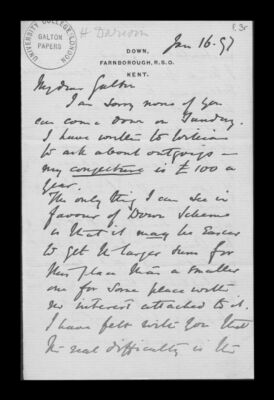 UNIVERSITY COLLEGE LONDON
GALTON
PAPERS
H Darwin
DOWN,
FARNBOROUGH, R.S.O.
KENT.
Jan 16. 97
My dear Galton
I am sorry none of you
can come down on Sunday.
I have written to
to ask about outgoings —
my conjecture is £100 a
year.
The only thing I can see in
favour of Down Scheme
is that it may be easier
to get the larger sum for
this place than a smaller
one for some place with
no interest attached to it.
I have felt with you that
the real difficulty is the